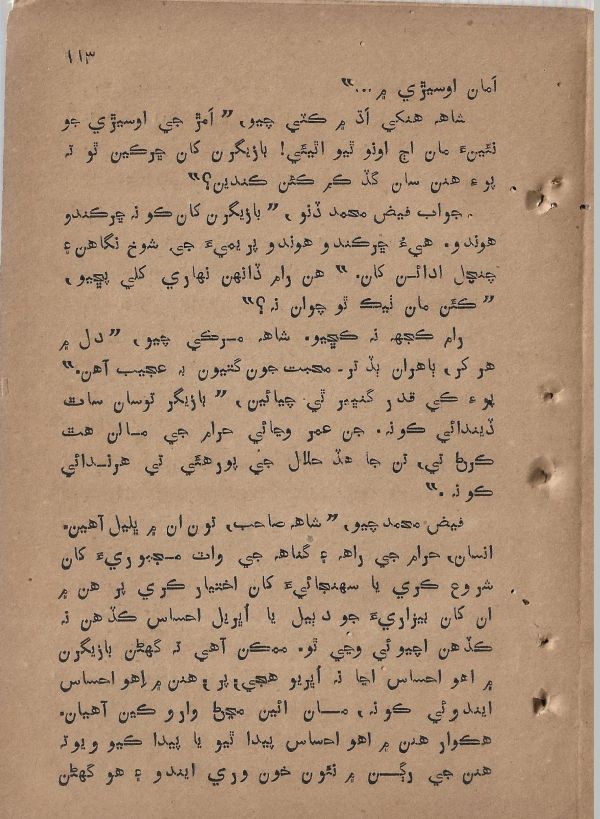 ١١٣
اَمان اوسيئڙي ۾...“
شاهہ هنکي اَڌ ۾ ڪٽي چيو، ”اَمڙ جي اوسيئڙي جو
نئينءَ مان اڄ اونو ٿيو اٿيئي! بازيگرن کان ڇرڪين ٿو تہ
پوءِ هنن سان گڏ ڪم ڪئن ڪندين؟“
جواب فيض محمد ڏنو، ”بازيگرن کان ڪونہ ڇرڪندو
هوندو. هيءُ ڇرڪندو هوندو پريميءَ جي شوخ نگاهن ۽
چنچل ادائن کان.“ هن رام ڏانهن نهاري کلي پڇيو،
”ڪئن مان ٺيڪ ٿو چوان نہ؟“
رام ڪجهہ نہ ڪڇيو. شاهہ مرڪي چيو، ”دل ۾
هر کر، ٻاهران ٻڏ تر۔ محبت جون گتيون بہ عجيب آهن.“
پوءِ ڪي قدر گنڀير ٿي چيائين، ”بازيگر توسان ساٿ
ڏيندائي ڪونہ. جن عمر وڃائي حرام جي مالن هٿ
ڪرڻ تي، تن جا هڏ حلال جي پورهئي تي هرندائي
ڪونہ.“
فيض محمد چيو، ”شاهہ صاحب، تون ان ۾ ڀليل آهين.
انسان، حرام جي راهہ ۽ گناهہ جي واٽ مجبوريءَ کان
شروع ڪري يا سهنجائيءَ کان اختيار ڪري پر هن ۾
ان کان بيزاريءَ جو دٻيل يا اُڀريل احساس ڪڏهن نہ
ڪڏهن اچيوئي وڃي ٿو. ممڪن آهي تہ گهڻن بازيگرن
۾ اهو احساس اڃا نہ اُڀريو هجي، پر، هنن ۾ اِهو احساس
ايندوئي ڪونہ، مان ائين مڃڻ وارو ڪين آهيان.
هڪوار هنن ۾ اهو احساس پيدا ٿيو يا پيدا ڪيو ويو تہ
هنن جي رڳن ۾ نئون خون وري ايندو ۽ هو گهڻن